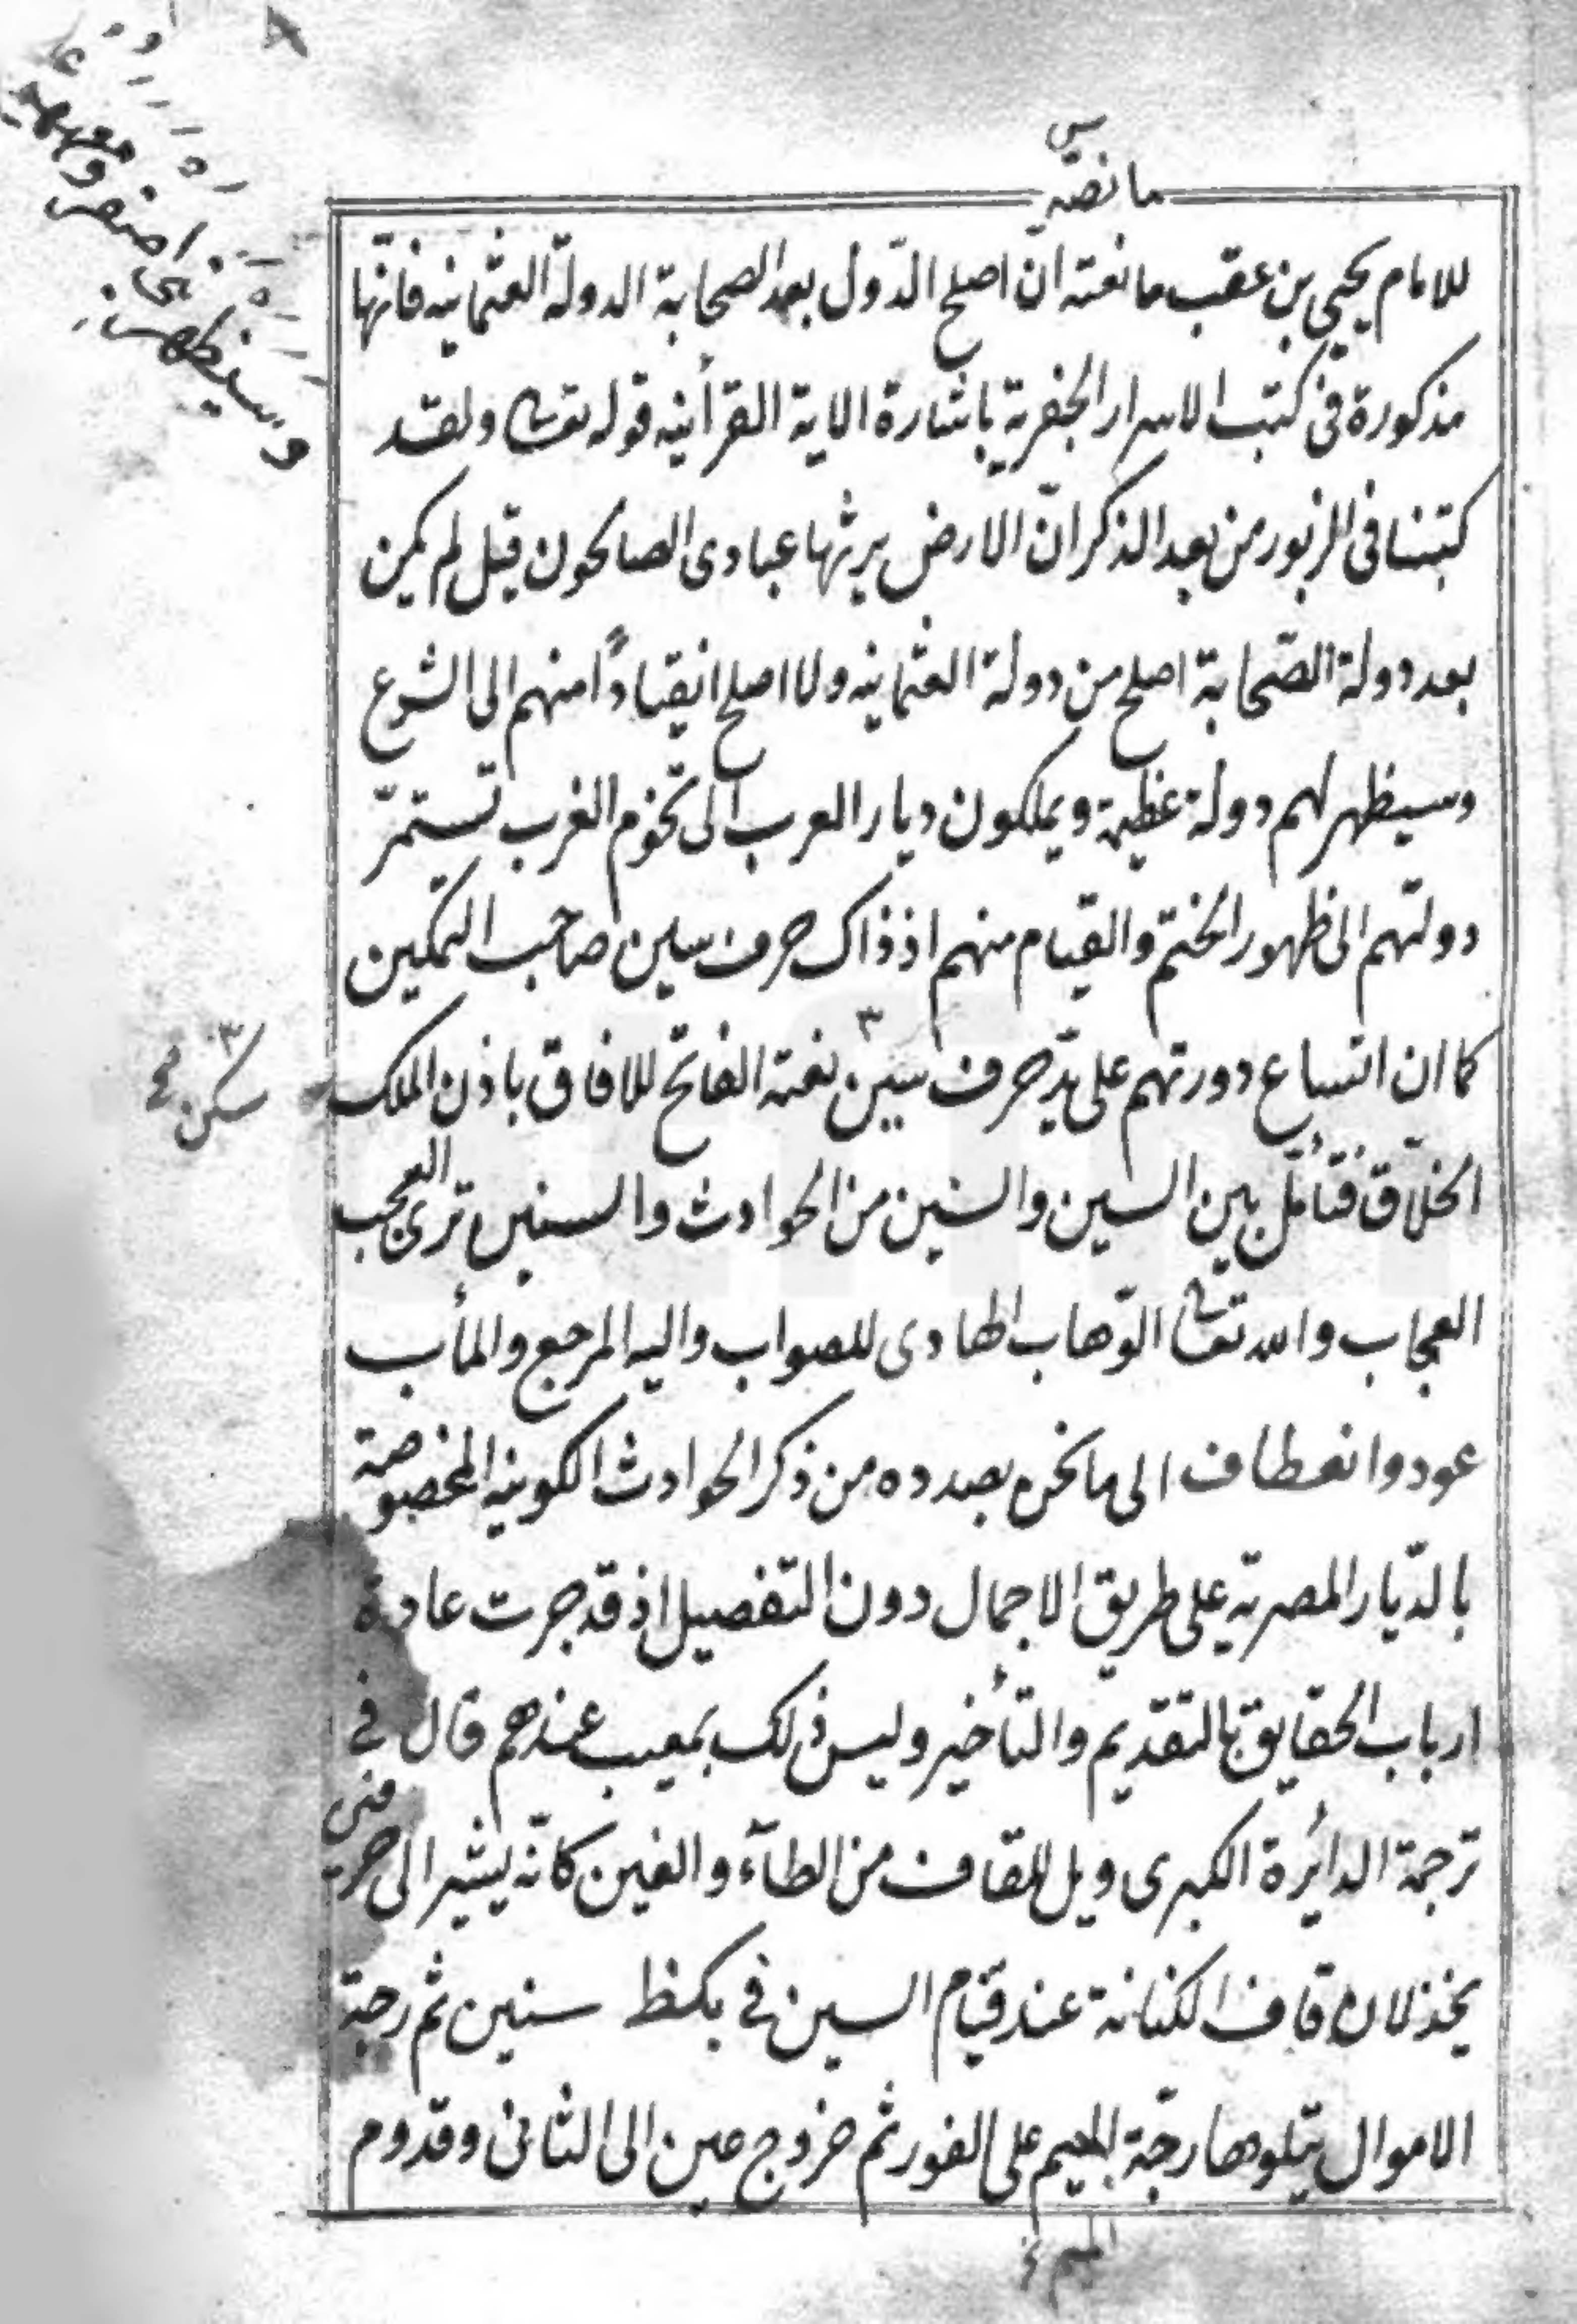 ما نصّه
للامام يحيى بن عقب ما نعته ان اصلح الدّول بعد الصحابة الدولة العثمانيه فانّها
مذكورة فى كتب الاسرار الجفرية باشارة الاية القرأنيه قوله تعا ولقد
كتبنا فى الزبور من بعد الذكر انّ الارض يرثها عبادى الصالحون قيل لم يكن
بعد دولة الصّحابة اصلح من دولة العثمانيه ولا اصلح انقيادًا منهم الى الشرع
وسيظهر لهم دولة عظيمة ويملكون ديار العرب الى تخوم الغرب تستمرّ
دولتهم الى ظهور الختم والقيام منهم اذ ذاك حرف سين صاحب التمكين
كما ان اتساع دورتهم على يد حرف سين نعته الفاتح للافاق باذن الملك
الخلّاق فتأمّل بين السين والسين من الحوادث والسنين ترى العجب
العجاب والله تعا الوّهاب الهادى للصواب واليه المرجع والمأب
عود وانعطاف الى ما نحن بصدده من ذكر الحوادث الكونيه المخصوصة
بالدّيار المصريّة على طريق الاجمال دون التفصيل اذ قد جرت عادة
ارباب الحقايق بالتقديم والتأخير وليس ذلك بمعيب عندهم قال فى
ترجمة الدائرة الكبرى ويل للقاف من الطآء والغين كانّه يشير الى
يخذلان قاف الكنانة عند قيام السين فى بكظ سنين ثم رجة
الاموال يتلوها رجّة الميم على الفور ثم خروج عين الى الثانى وقدوم
الميم